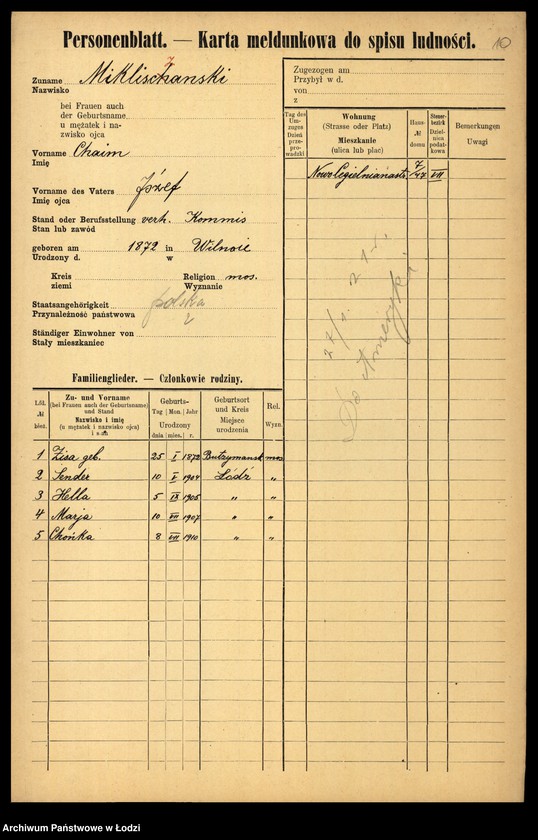 Personenblatt. — Karta meldunkowa do spisu ludności.
10
Zuname Miklischanski
Nazwisko
bei Frauen auch
der Geburtsname
u mężatek i na-
zwisko ojca
Vorname Chaim
Imię
Vorname des Vaters Józef
Imię ojca
Stand oder Berufsstellung verh. Kommis
Stan lub zawód
geboren am 1872 in Wilnoie
Urodzony d. w
Kreis Religion mos.
ziemi Wyznanie
Staatsangehörigkeit polska
Przynależność państwowa
Ständiger Einwohner von
Stały mieszkaniec
Zugezogen am
Przybył w d.
von
z
Tag des Um-zuges Dzień prze-prowadzki
Wohnung
(Strasse oder Platz)
Mieszkanie
(ulica lub plac)
Haus-№ domu
Steuer-bezirk Dziel-nica podat-kowa
Bemerkungen
Uwagi
NowoCegielnianastr 7/47 VII
27/2. 21 r.
Do Ameryki
Familienglieder. — Członkowie rodziny.
Lfd. № bież.
Zu- und Vorname
(bei Frauen auch der Geburtsname)
und Stand
Nazwisko i imię
(u mężatek i nazwisko ojca)
i stan
Geburts-
Tag Mon. Jahr
Urodzony
dnia mies. r.
Geburtsort
und Kreis
Miejsce
urodzenia
Rel.
Wyzn.
1 Zisa geb. 25 I 1872 Butrymansk mos
2 Sender 10 V 1904 Łódź "
3 Hella 5 IX 1905 " "
4 Marja 10 VII 1907 " "
5 Chońka 8 VII 1910 " "
Archiwum Państwowe w Łodzi